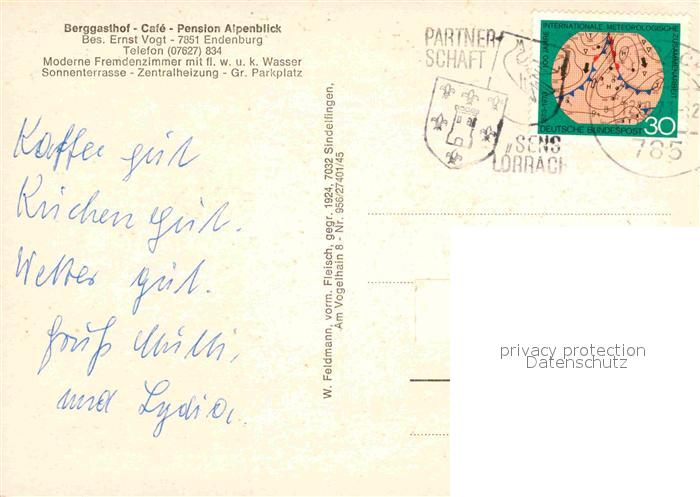 Berggasthof - Café - Pension Alpenblick
Bes. Ernst Vogt - 7851 Endenburg
Telefon (07627) 834
Moderne Fremdenzimmer mit fl. w. u. k. Wasser
Sonnenterrasse - Zentralheizung - Gr. Parkplatz
Kaffee gut
Kuchen gut.
Wetter gut.
Gruß Mutti,
und Lydia.
W. Feldmann, vorm. Fleisch, gegr. 1924, 7032 Sindelfingen,
Am Vogelhain 8 - Nr. 956/27401/45
PARTNER
SCHAFT
SENS
LÖRRACH
100 JAHRE INTERNATIONALE METEOROLOGISCHE ZUSAMMENARBEIT
1873-1973
DEUTSCHE BUNDESPOST 30
785
privacy protection
Datenschutz